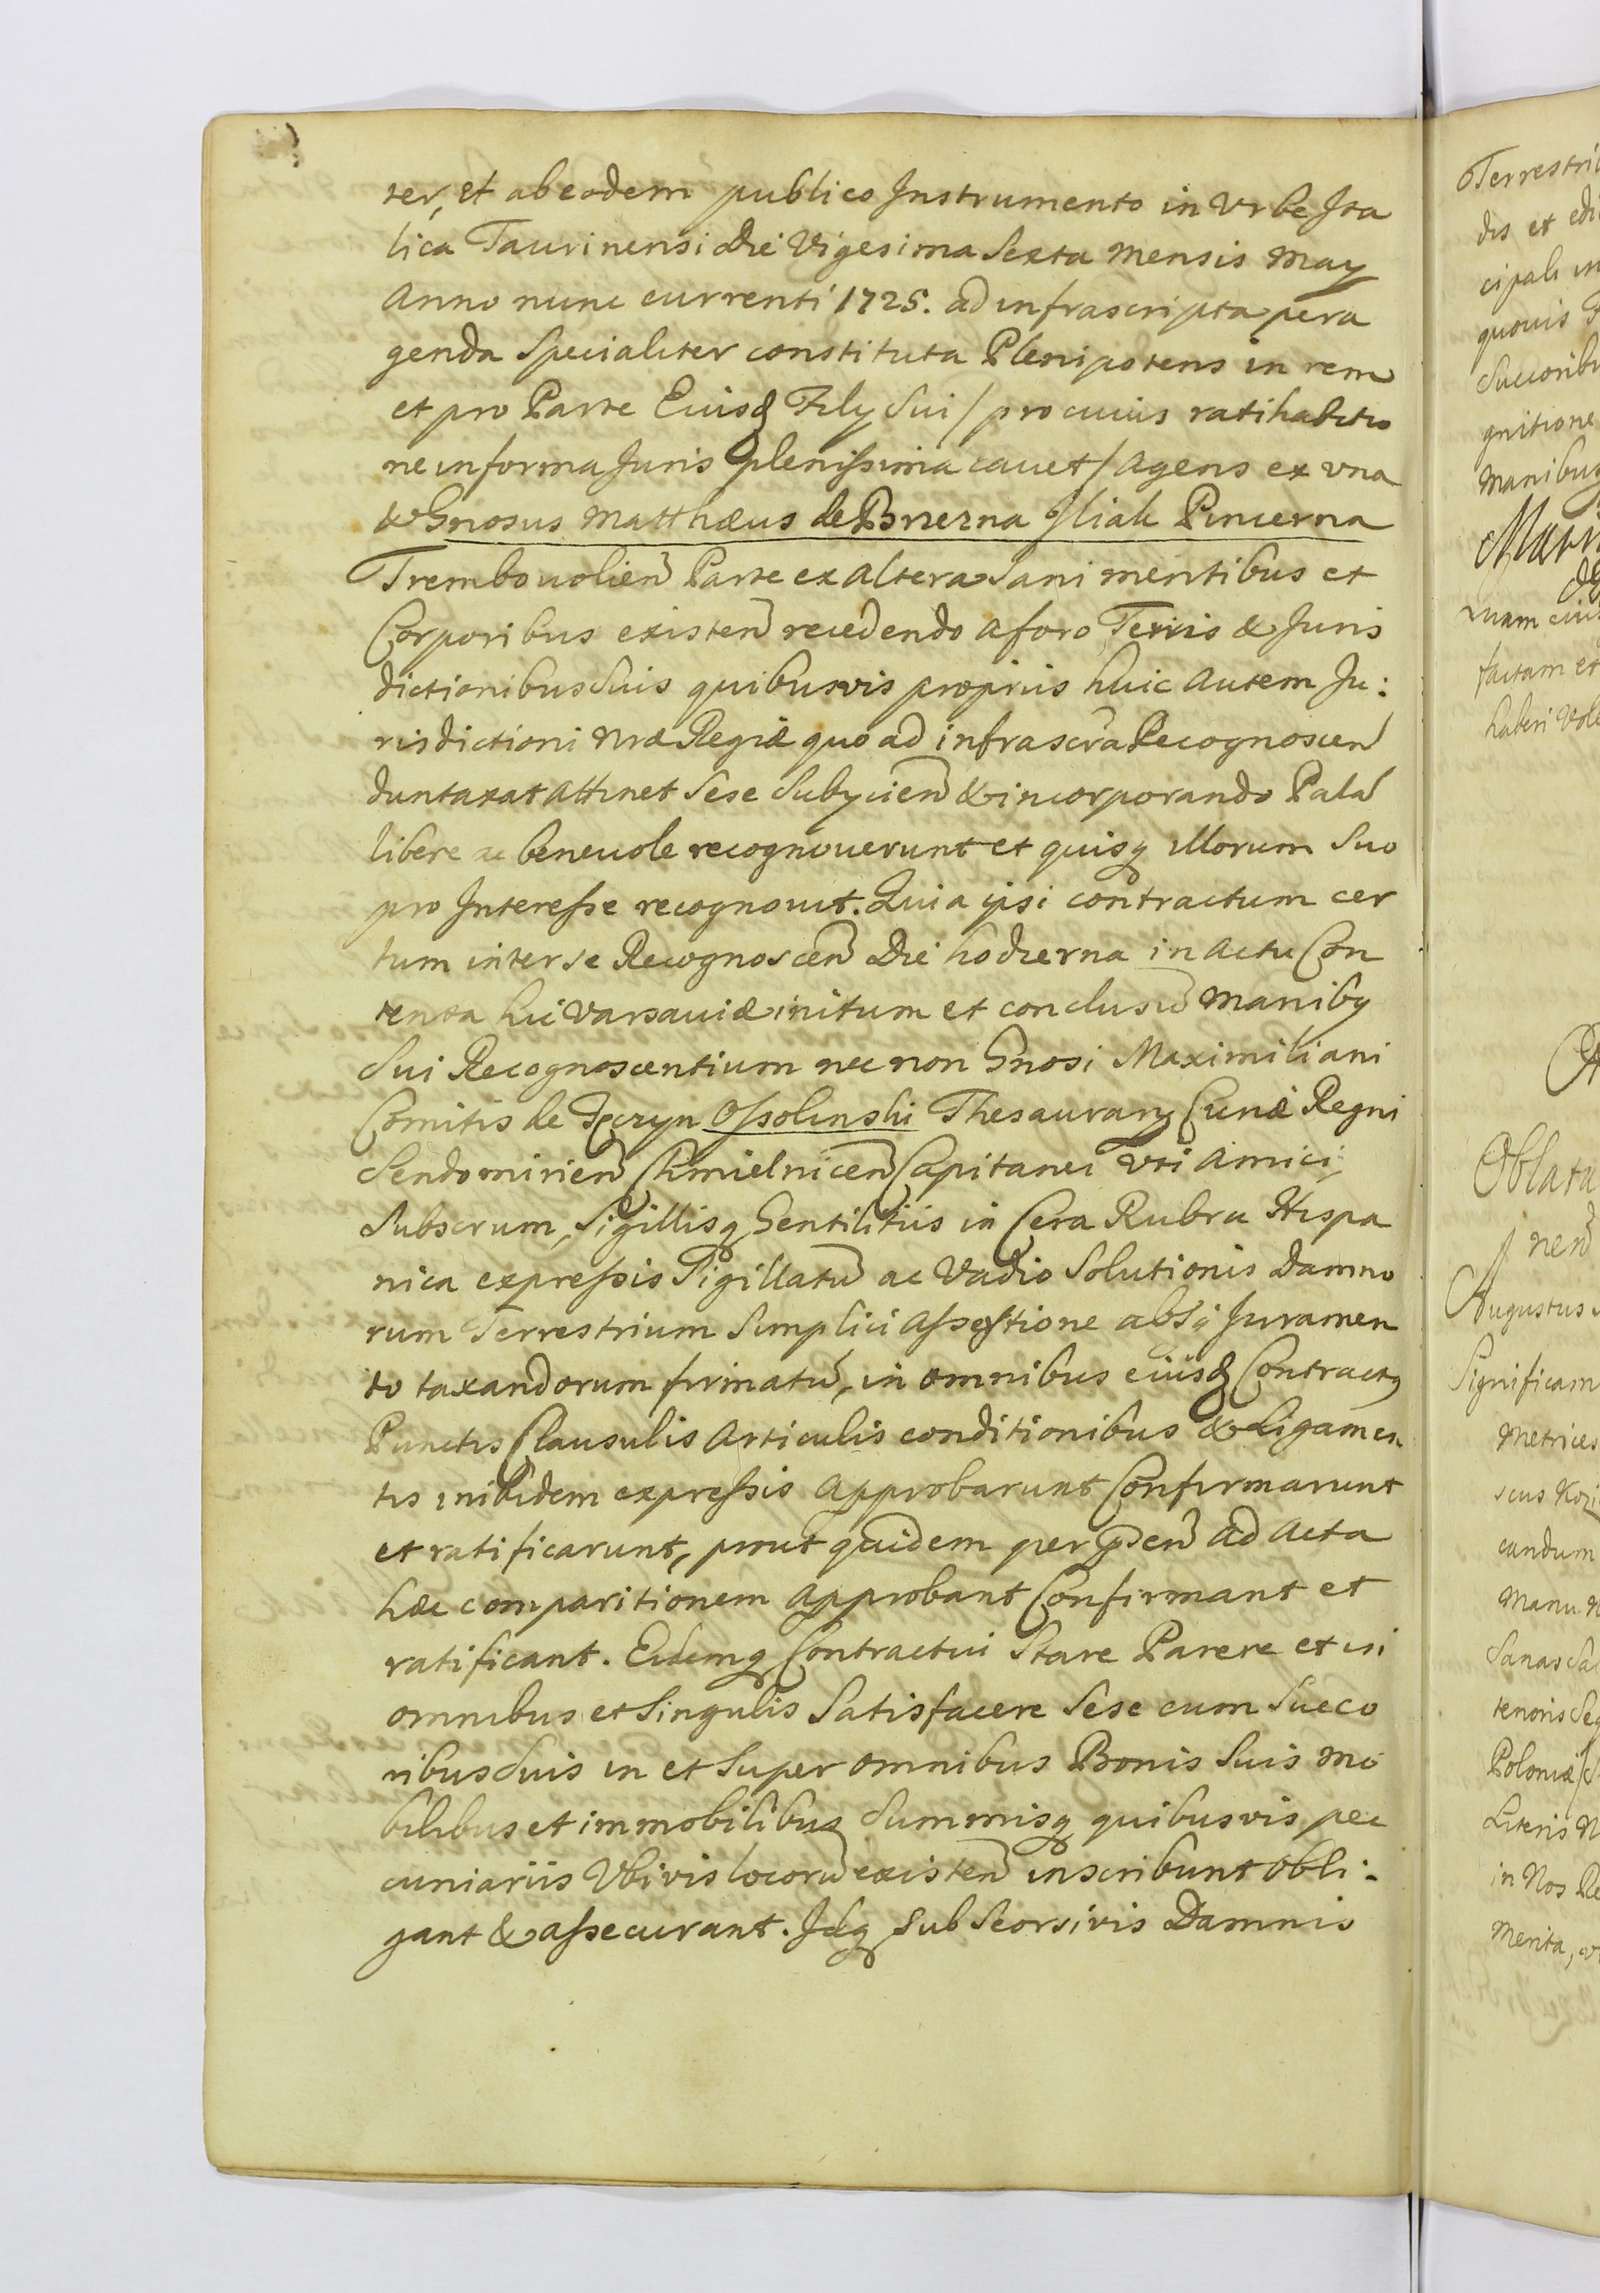 ter, et ab eodem publico Instrumento in Vrbe Ita
lica Taurinensi Die Vigesima Sexta Mensis May
Anno nunc currenti 1725. ad infrascripta pera
genda Specialiter constituta Plenipotens in rem
et pro Parte Eiusd Fily Sui / pro cuius ratihabitio
ne in forma Juris plenissima cauet / Agens ex vna
& Gnosus Matthæus de Brzezna Pincerna
Trembouolien Parte ex altera Sani mentibus et
Corporibus existen recedendo a foro Terris & Juris
dictionibus Suis quibusvis proprijs huic autem Ju:
risdictioni nræ Regiæ quo ad infrascra Recognoscen
duntaxat attinet Sese Subycien & incorporando Palã
libere ac beneuole recognouerunt et quisq illorum Suo
pro Interesse recognouit. Quia ipsi contractum cer
tum inter se Recognoscen Die hodierna in Actu Con
tenta hic Varsauiæ initum et conclusũ Manibq
Sui Recognoscentium nec non Gnosi Maximiliani
Comitis de Tęczyn Ossolinski Thesaurary Curiæ Regni
Sendomirien Chmielnicen Capitanei Vti Amici
Subscrum, Sigillisq Gentilitiis in Cera Rubra Hispa
nica expressis Sigillatũ ac Vadio Solutionis Damno
rum Terrestrium Simplici Assertione absq Juramen
to taxandorum firmatũ, in omnibus eiusd Contractq
Punctis Clausulis Articulis conditionibus & Ligamen
tis inibidem expressis Approbarunt Confirmarunt
et ratificarunt, prout quidem per psen ad Acta
hæc comparitionem Approbant Confirmant et
ratificant. Eidemq Contractui Stare Parere et in
omnibus et Singulis Satisfacere Sese cum Succo
ribus Suis in et Super omnibus Bonis Suis mo
bilibus et immobilibus Summisq quibusvis pec
cuniariis Vbivis locorũ existen inscribunt obli:
gant & assecurant. Idq Sub Seorsivis Damnis
Terrestri
dis et
cipali in
quouis
Succorib
gnitione
Manibus
factam et
haberi Vol
Oblata
Augustus
Significam
Metrices
candum
Manu
tenoris Seq
Poloniæ
Literis N
in Nos Re
Merita,